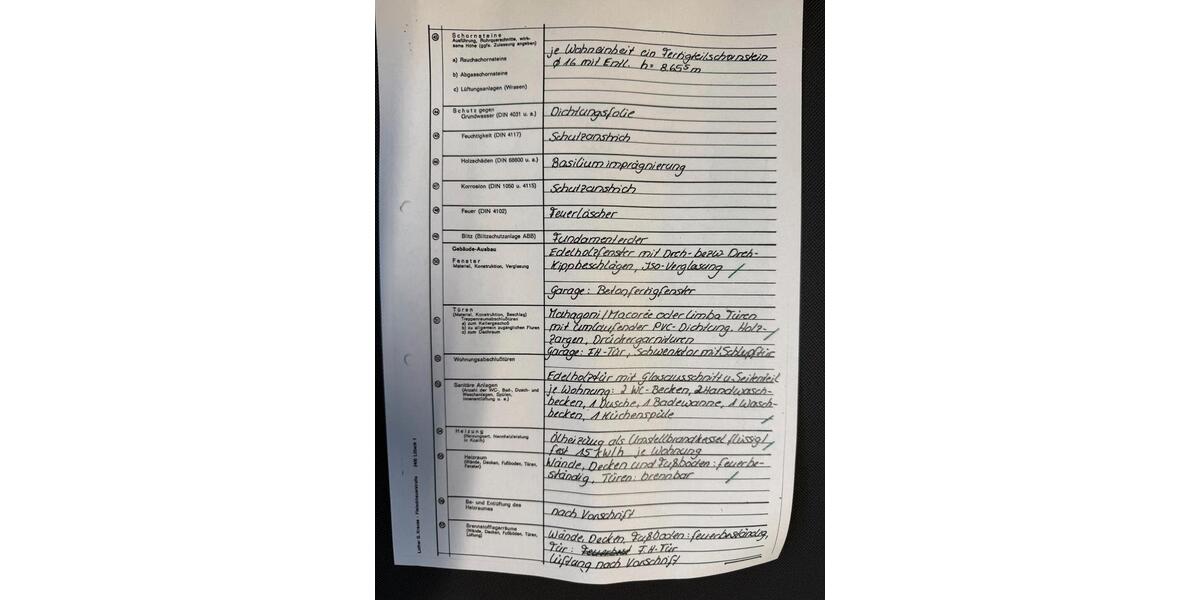 Schornsteine
Ausführung, Rohrquerschnitte, wirk-
same Höhe (ggfs. Zulassung angeben)
a) Rauchschornsteine
b) Abgasschornsteine
c) Lüftungsanlagen (Wrasen)
je Wohneinheit ein Fertigteilschornstein
ϕ 16 mit Entl. h= 8.65⁵ m
44 Schutz gegen
Grundwasser (DIN 4031 u. a.)
Dichtungsfolie
45 Feuchtigkeit (DIN 4117)
Schutzanstrich
46 Holzschäden (DIN 68800 u. a.)
Basiliumimprägnierung
47 Korrosion (DIN 1050 u. 4115)
Schutzanstrich
48 Feuer (DIN 4102)
Feuerlöscher
49 Blitz (Blitzschutzanlage ABB)
Fundamenterder
Gebäude-Ausbau
50 Fenster
Material, Konstruktion, Verglasung
Edelholzfenster mit Dreh- bezw Dreh-
Kippbeschlägen, Iso-Verglasung
Garage: Betonfertigfenster
51 Türen
(Material, Konstruktion, Beschlag)
Treppenraumabschlußtüren
a) zum Kellergeschoß
b) zu allgemein zugänglichen Fluren
c) zum Dachraum
Mahagoni/Macorée oder Limba Türen
mit umlaufender PVC-Dichtung. Holz-
zargen, Drückergarnituren
Garage: F.H-Tür, Schwenktor mit Schlupftür
52 Wohnungsabschlußtüren
Edelholztür mit Glasausschnitt u. Seitenteil
53 Sanitäre Anlagen
(Anzahl der WC-, Bad-, Dusch- und
Waschanlagen, Spülen,
Innenentlüftung u. a.)
je Wohnung: 2 WC-Becken, 2 Handwasch-
becken, 1 Dusche, 1 Badewanne, 1 Wasch-
becken, 1 Küchenspüle
54 Heizung
(Heizungsart, Nennheizleistung
in Kcal/h)
Ölheizung als Umstellbrandkessel flüssig/
fest 15 kW/h je Wohnung
55 Heizraum
(Wände, Decken, Fußboden, Türen,
Fenster)
Wände, Decken und Fußboden: feuerbe-
ständig, Türen: brennbar
56 Be- und Entlüftung des
Heizraumes
nach Vorschrift
57 Brennstofflagerräume
(Wände, Decken, Fußboden, Türen,
Lüftung)
Wände, Decken, Fußboden: feuerbeständig,
Tür: F.H-Tür
Lüftung nach Vorschrift